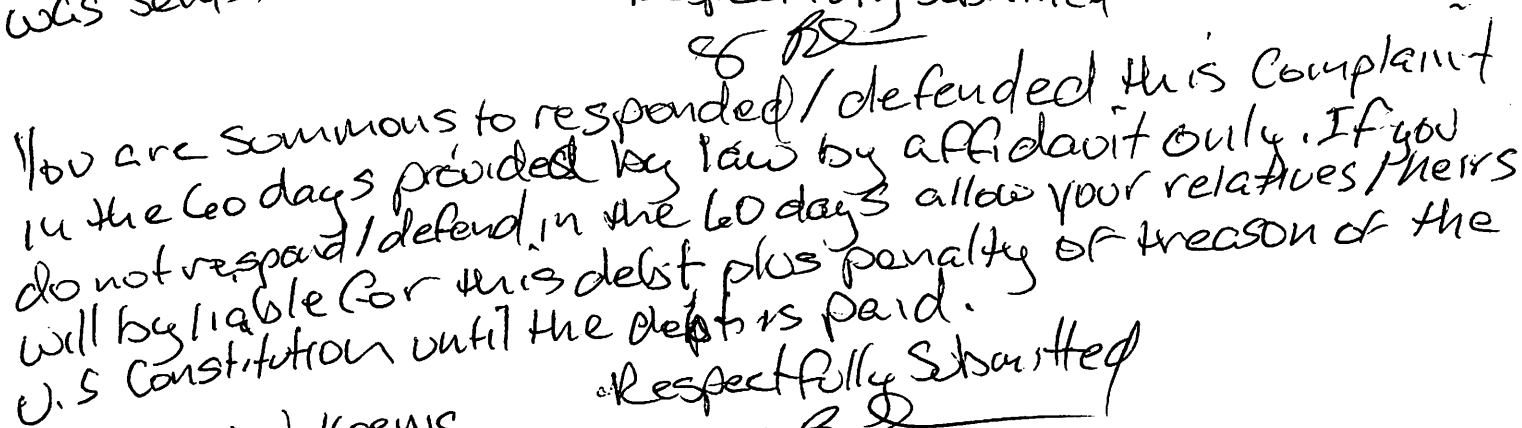 was
Respectfully Submitted
You are summons to responded/defended this Complaint
in the 60 days provided by law by affidavit only. If you
do not respond/defend in the 60 days allow your relatives/heirs
will by liable for this debt plus penalty of treason of the
U.S Constitution until the debt is paid.
Respectfully Submitted